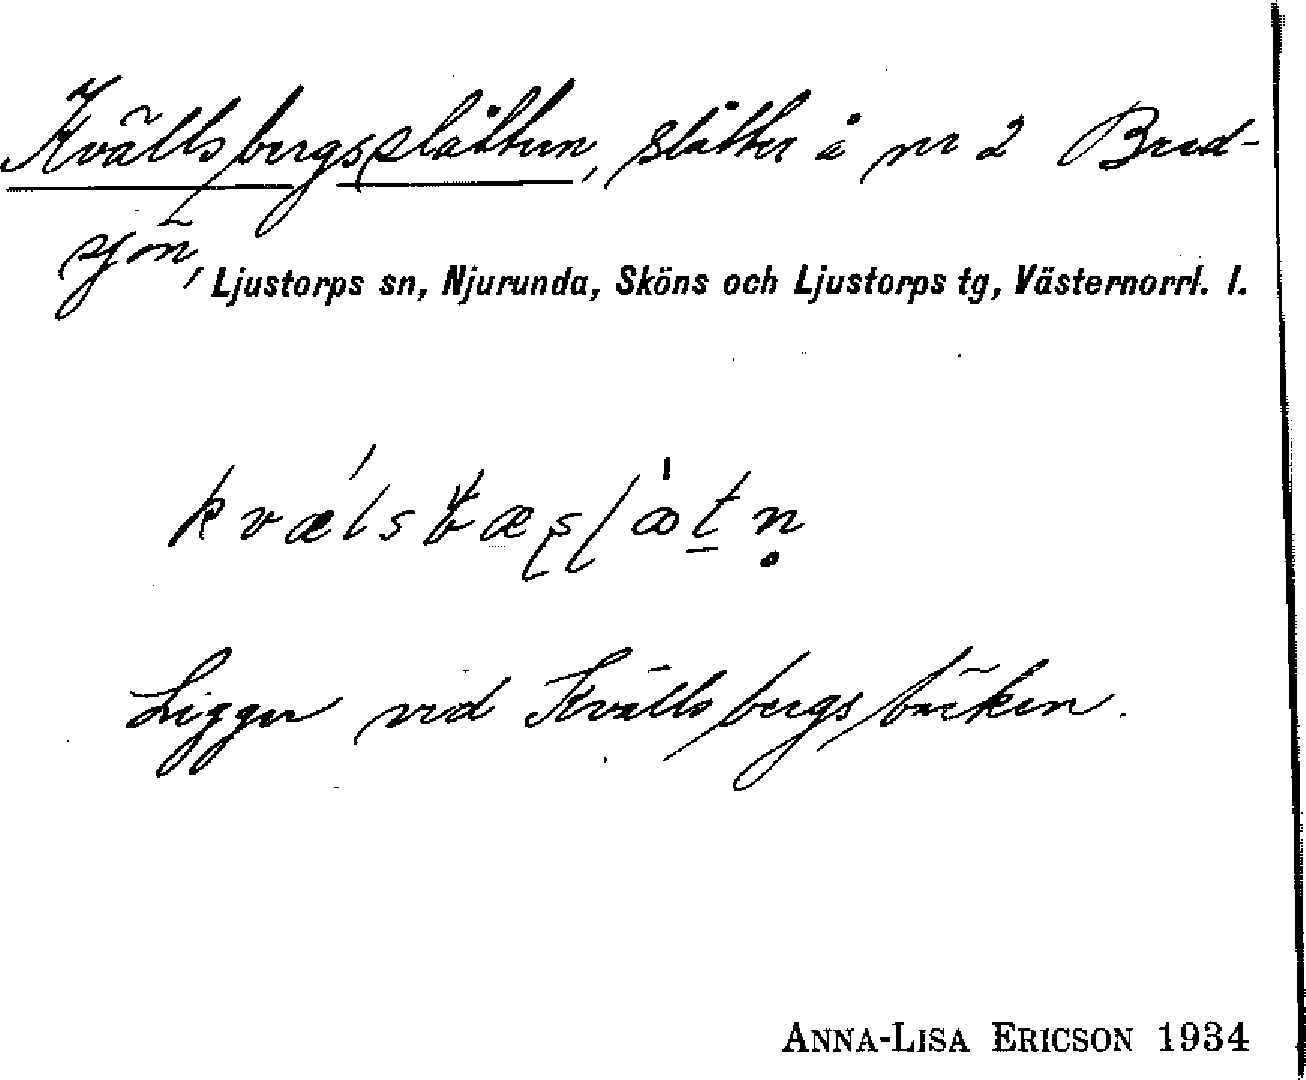 Kvällsbergsslåttern, slåtter å nr 2 Bred-
sjön, Ljustorps sn, Njurunda, Sköns och Ljustorps tg, Västernorrl. l.
Ligger vid Kvällsbergsbäcken.
ANNA-LISA ERICSON 1934